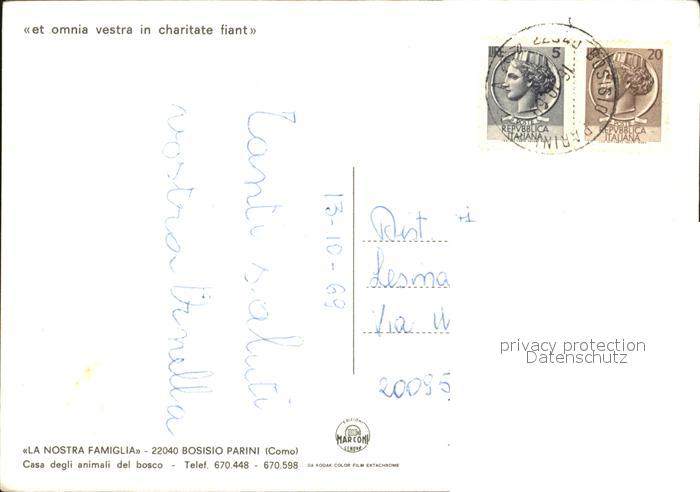 «et omnia vestra in charitate fiant»
LIRE 5
20
POSTE
REPVBBLICA
ITALIANA
POSTE
REPVBBLICA
ITALIANA
22040 BOSISIO PARINI
Tanti saluti
vostra Ornella
13-10-69
Dist
Lesma
Via
20095
privacy protection
Datenschutz
«LA NOSTRA FAMIGLIA» - 22040 BOSISIO PARINI (Como)
Casa degli animali del bosco - Telef. 670.448 - 670.598
EDIZIONI
MARCONI
GENOVA
DA KODAK COLOR FILM EKTACHROME